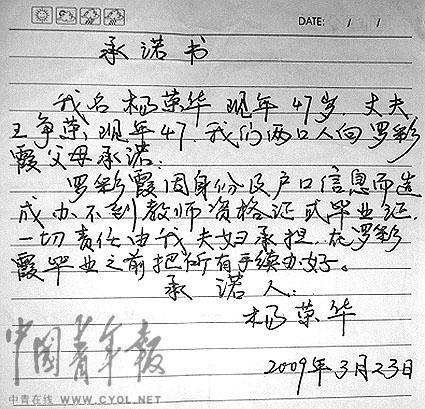 DATE: / /
承诺书
我名杨荣华 现年47岁,丈夫
王争荣,现年47.我们两口人向罗彩
霞父母承诺:
罗彩霞因身份及户口信息而造
成办不到教师资格证或毕业证,
一切责任由我夫妇承担,在罗彩
霞毕业之前把所有手续办好。
承诺人:
杨荣华
2009年3月23日
中国青年报
中青在线 WWW.CYOL.NET